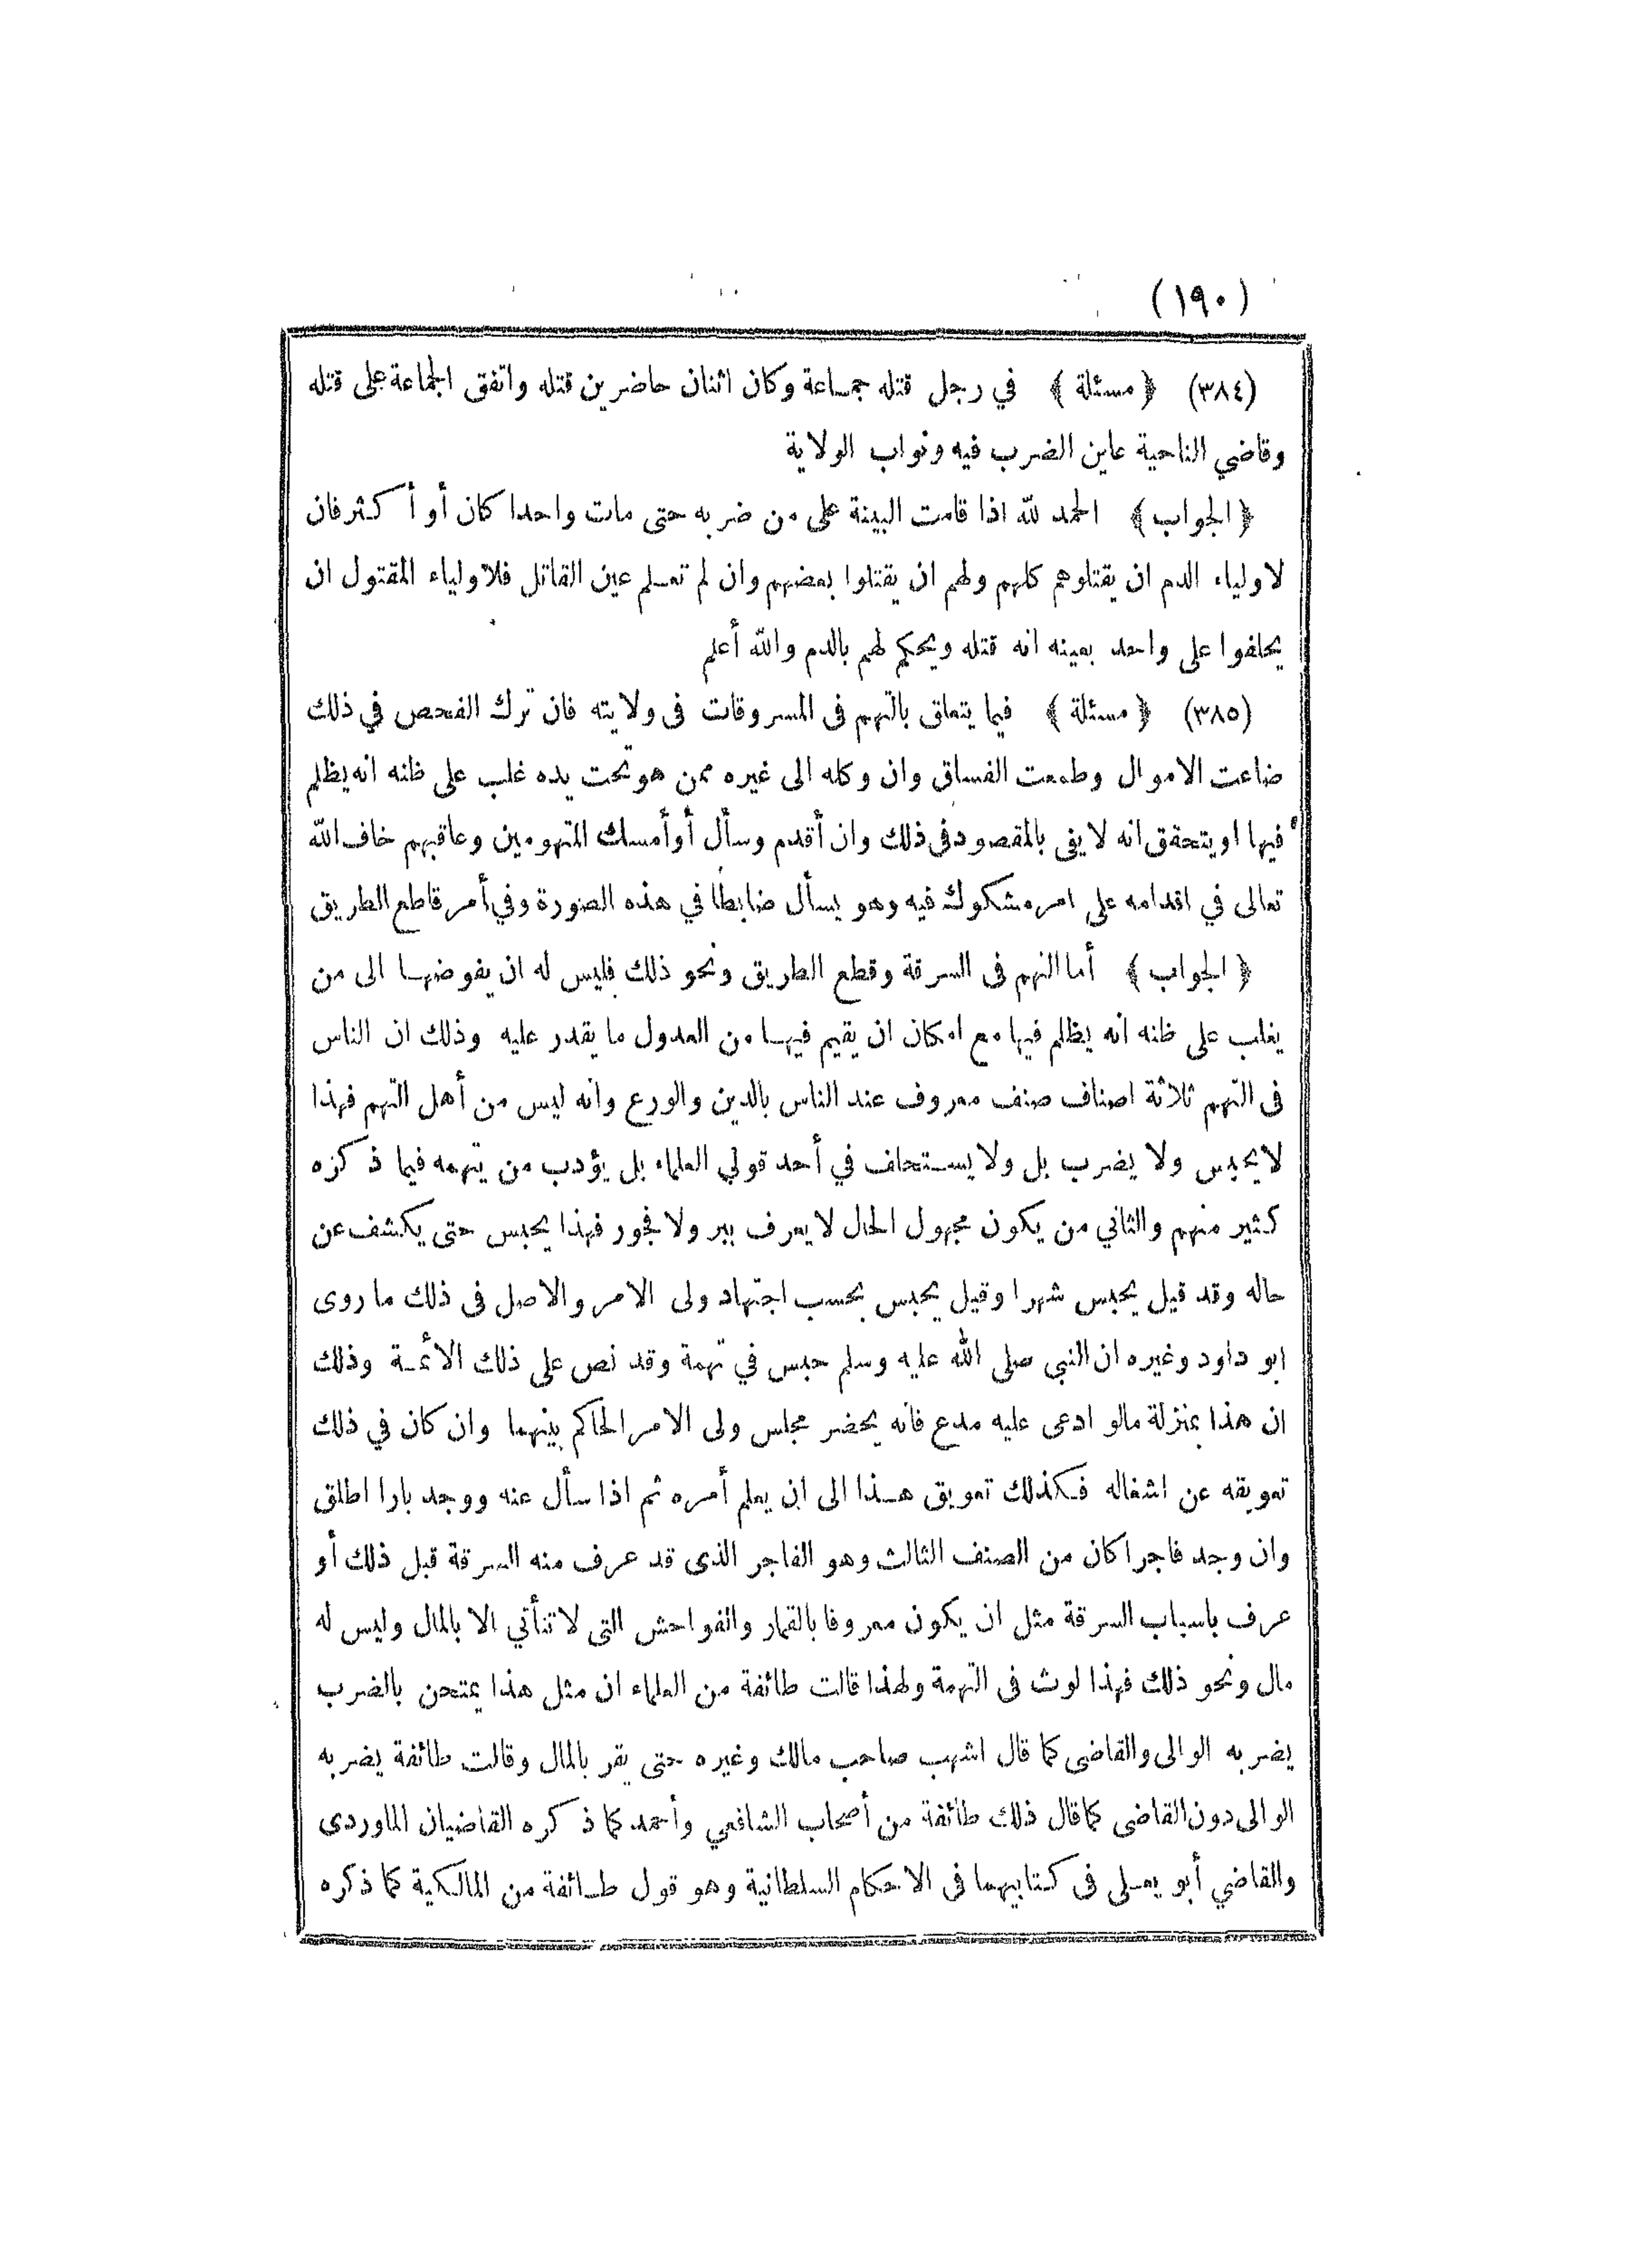 (١٩٠)
(٣٨٤) ﴿ مسئلة ﴾ في رجل قتله جماعة وكان اثنان حاضرين قتله واتفق الجماعة على قتله
وقاضي الناحية عاين الضرب فيه ونواب الولاية
﴿ الجواب ﴾ الحمد لله اذا قامت البينة على من ضربه حتى مات واحدا كان أو أكثر فان
لاولياء الدم ان يقتلوهم كلهم ولهم ان يقتلوا بعضهم وان لم تعلم عين القاتل فلاولياء المقتول ان
يحلفوا على واحد بعينه انه قتله ويحكم لهم بالدم والله أعلم
(٣٨٥) ﴿ مسئلة ﴾ فيما يتعلق بالتهم فى المسروقات فى ولايته فان ترك الفحص في ذلك
ضاعت الاموال وطمعت الفساق وان وكله الى غيره ممن هو تحت يده غلب على ظنه انه يظلم
فيها او يتحقق انه لا يفى بالمقصود فى ذلك وان أقدم وسأل أو أمسك المتهومين وعاقبهم خاف الله
تعالى في اقدامه على امر مشكوك فيه وهو يسأل ضابطا في هذه الصورة وفي أمر قاطع الطريق
﴿ الجواب ﴾ أما التهم فى السرقة وقطع الطريق ونحو ذلك فليس له ان يفوضها الى من
يغلب على ظنه انه يظلم فيها مع امكان ان يقيم فيها من العدول ما يقدر عليه وذلك ان الناس
فى التهم ثلاثة اصناف صنف معروف عند الناس بالدين والورع وانه ليس من أهل التهم فهذا
لا يحبس ولا يضرب بل ولا يستحلف في أحد قولي العلماء بل يؤدب من يتهمه فيما ذكره
كثير منهم والثاني من يكون مجهول الحال لا يعرف ببر ولا فجور فهذا يحبس حتى يكشف عن
حاله وقد قيل يحبس شهرا وقيل يحبس بحسب اجتهاد ولى الامر والاصل فى ذلك ما روى
ابو داود وغيره ان النبي صلى الله عليه وسلم حبس في تهمة وقد نص على ذلك الأئمة وذلك
ان هذا بمنزلة مالو ادعى عليه مدع فانه يحضر مجلس ولى الامر الحاكم بينهما وان كان في ذلك
تعويقه عن اشغاله فكذلك تعويق هذا الى ان يعلم أمره ثم اذا سأل عنه ووجد بارا اطلق
وان وجد فاجرا كان من الصنف الثالث وهو الفاجر الذى قد عرف منه السرقة قبل ذلك أو
عرف باسباب السرقة مثل ان يكون معروفا بالقمار والفواحش التى لا تتأتي الا بالمال وليس له
مال ونحو ذلك فهذا لوث فى التهمة ولهذا قالت طائفة من العلماء ان مثل هذا يمتحن بالضرب
يضربه الوالى والقاضى كما قال اشهب صاحب مالك وغيره حتى يقر بالمال وقالت طائفة يضربه
الوالى دون القاضى كما قال ذلك طائفة من أصحاب الشافعي وأحمد كما ذكره القاضيان الماوردى
والقاضي أبو يعلى فى كتابيهما فى الاحكام السلطانية وهو قول طائفة من المالكية كما ذكره